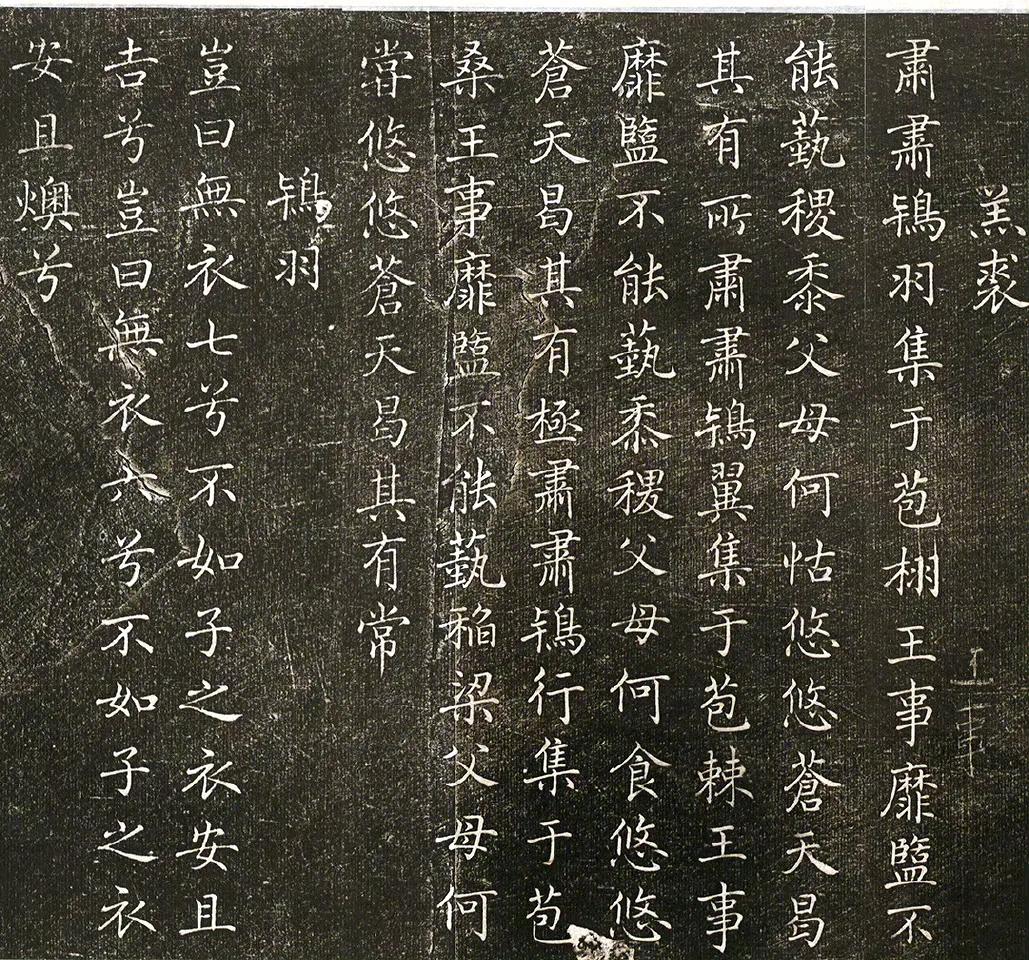 羔裘
王事
肅肅鴇羽集于苞栩王事靡盬不
能蓺稷黍父母何怙悠悠蒼天曷
其有所肅肅鴇翼集于苞棘王事
靡盬不能蓺黍稷父母何食悠悠
蒼天曷其有極肅肅鴇行集于苞
桑王事靡盬不能蓺稻粱父母何
嘗悠悠蒼天曷其有常
鴇羽
豈曰無衣七兮不如子之衣安且
吉兮豈曰無衣六兮不如子之衣
安且燠兮